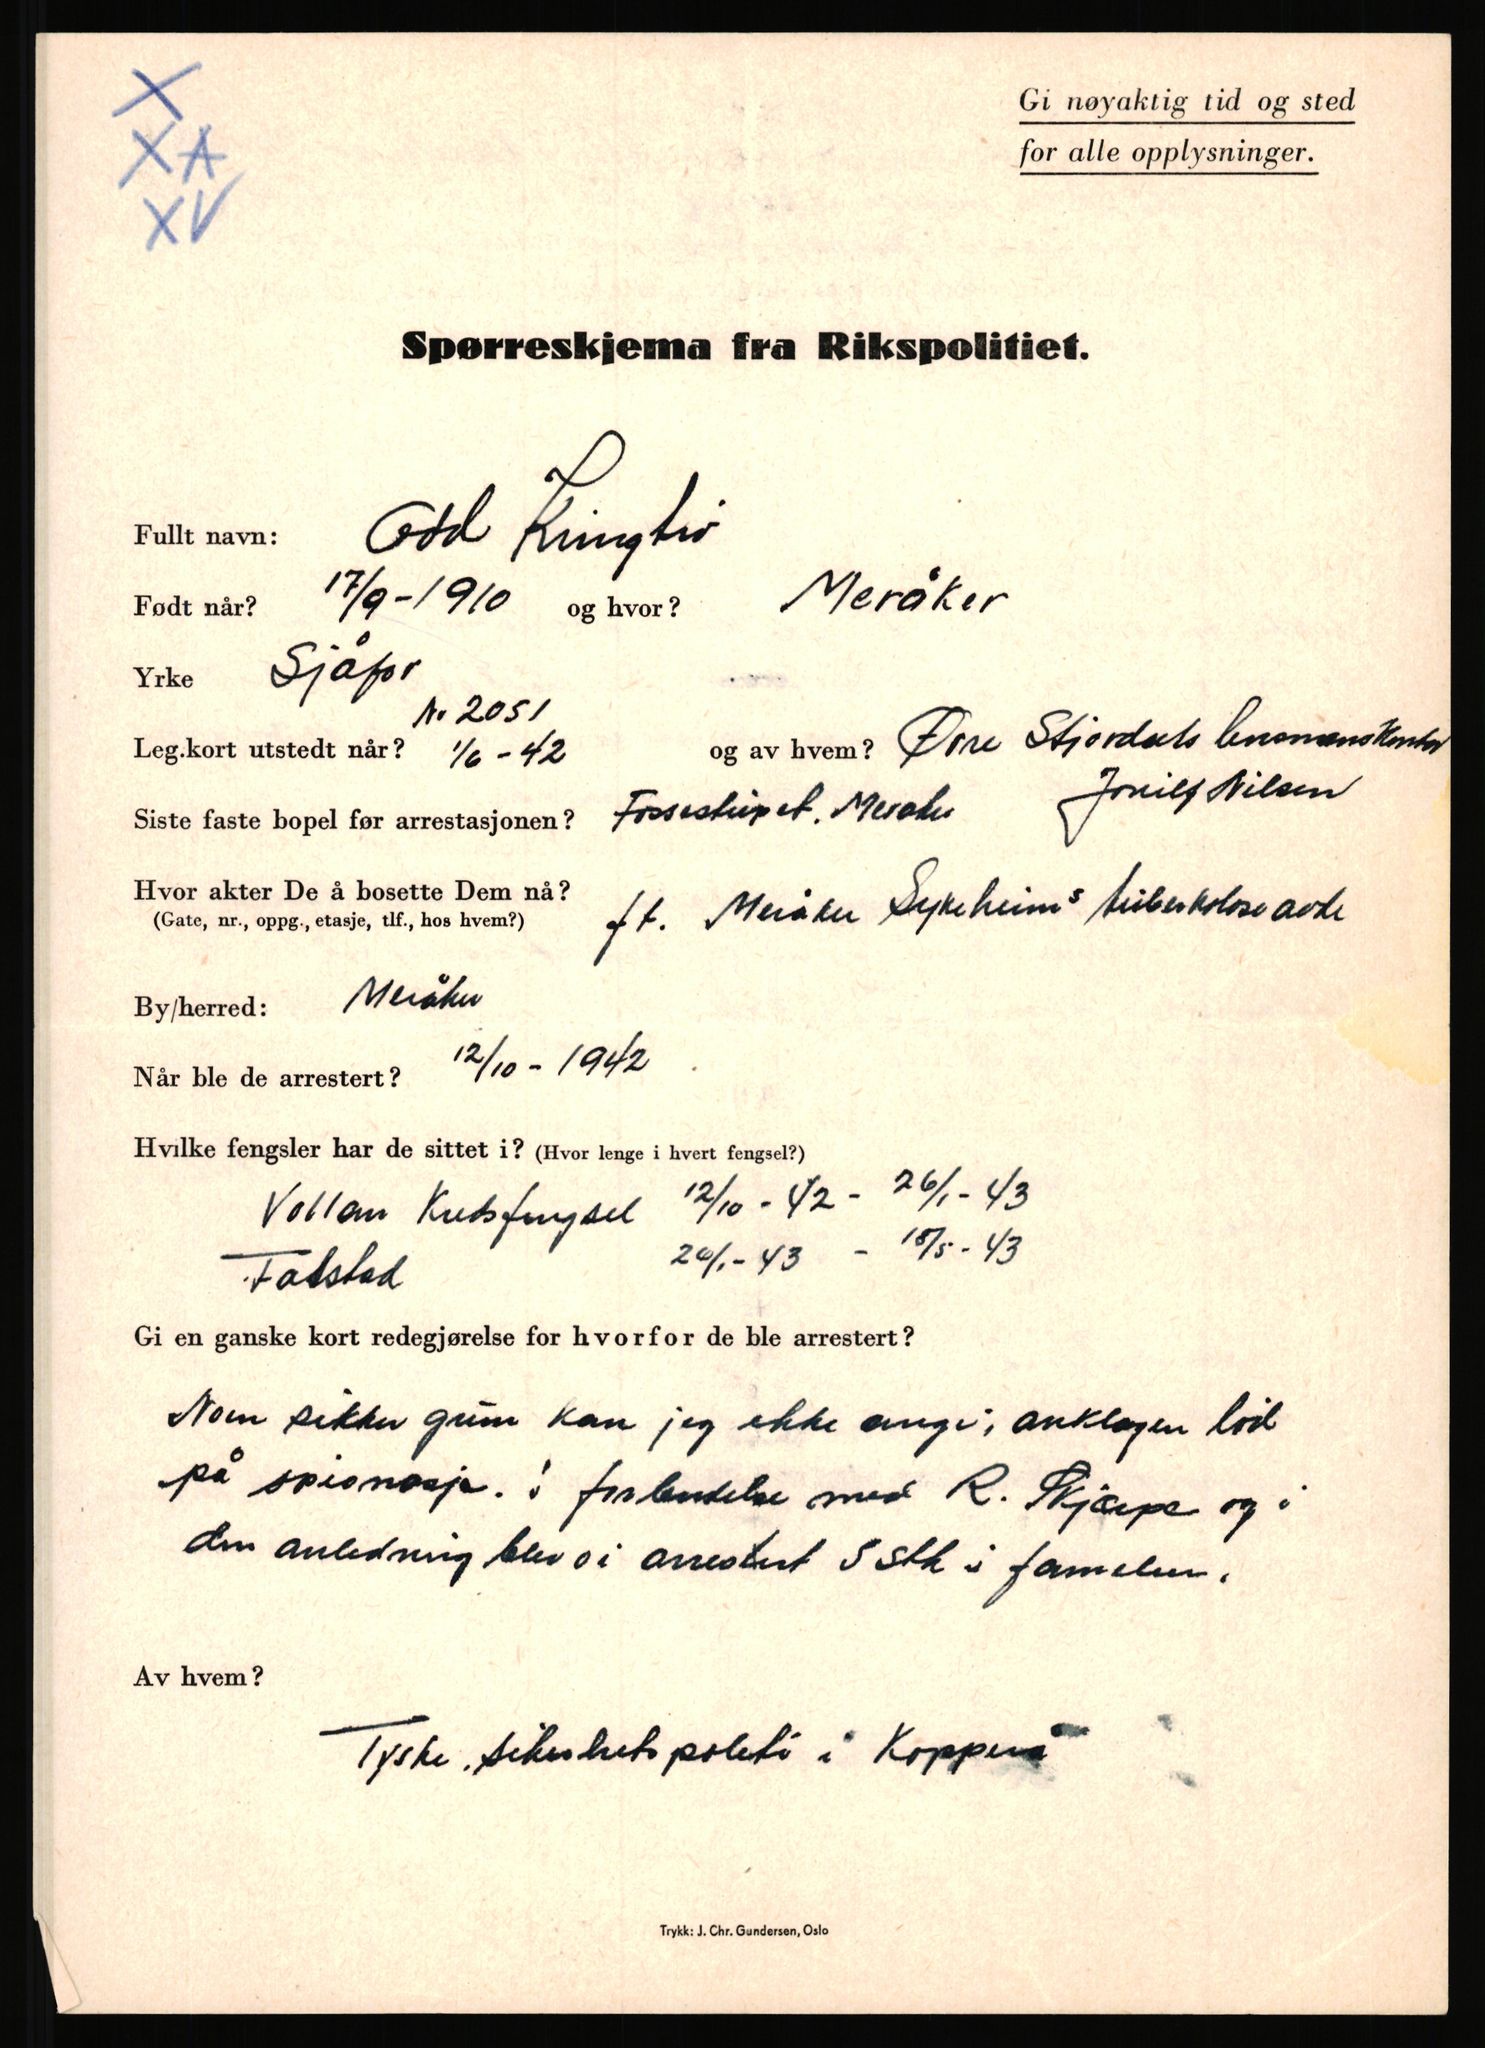 X
XA
XV
Gi nøyaktig tid og sted
for alle opplysninger.
Spørreskjema fra Rikspolitiet.
Fullt navn: Odd Kringtrø
Født når? 17/9-1910 og hvor? Meråker
Yrke Sjåfør
Nr 2051
Leg.kort utstedt når? 1/6-42 og av hvem? Øvre Stjørdals lensmanskontor
Siste faste bopel før arrestasjonen? Fossestupet. Meråker
Nilsen
Hvor akter De å bosette Dem nå? ft. Meråker Sykeheims tuberkolose avde
(Gate, nr., oppg., etasje, tlf., hos hvem?)
By/herred: Meråker
Når ble de arrestert? 12/10-1942
Hvilke fengsler har de sittet i? (Hvor lenge i hvert fengsel?)
Vollan Kretsfengsel 12/10-42 - 26/1-43
Falstad 26/1-43 - 18/5-43
Gi en ganske kort redegjørelse for hvorfor de ble arrestert?
Noen sikker grunn kan jeg ikke angi, anklagen lød
på spionasje. i forbindelse med R. Skjærpe og i
den anledning blev vi arrestert 5 stk i famelien.
Av hvem?
Tyske sikerhetspoleti i Kopperå
Trykk: J. Chr. Gundersen, Oslo